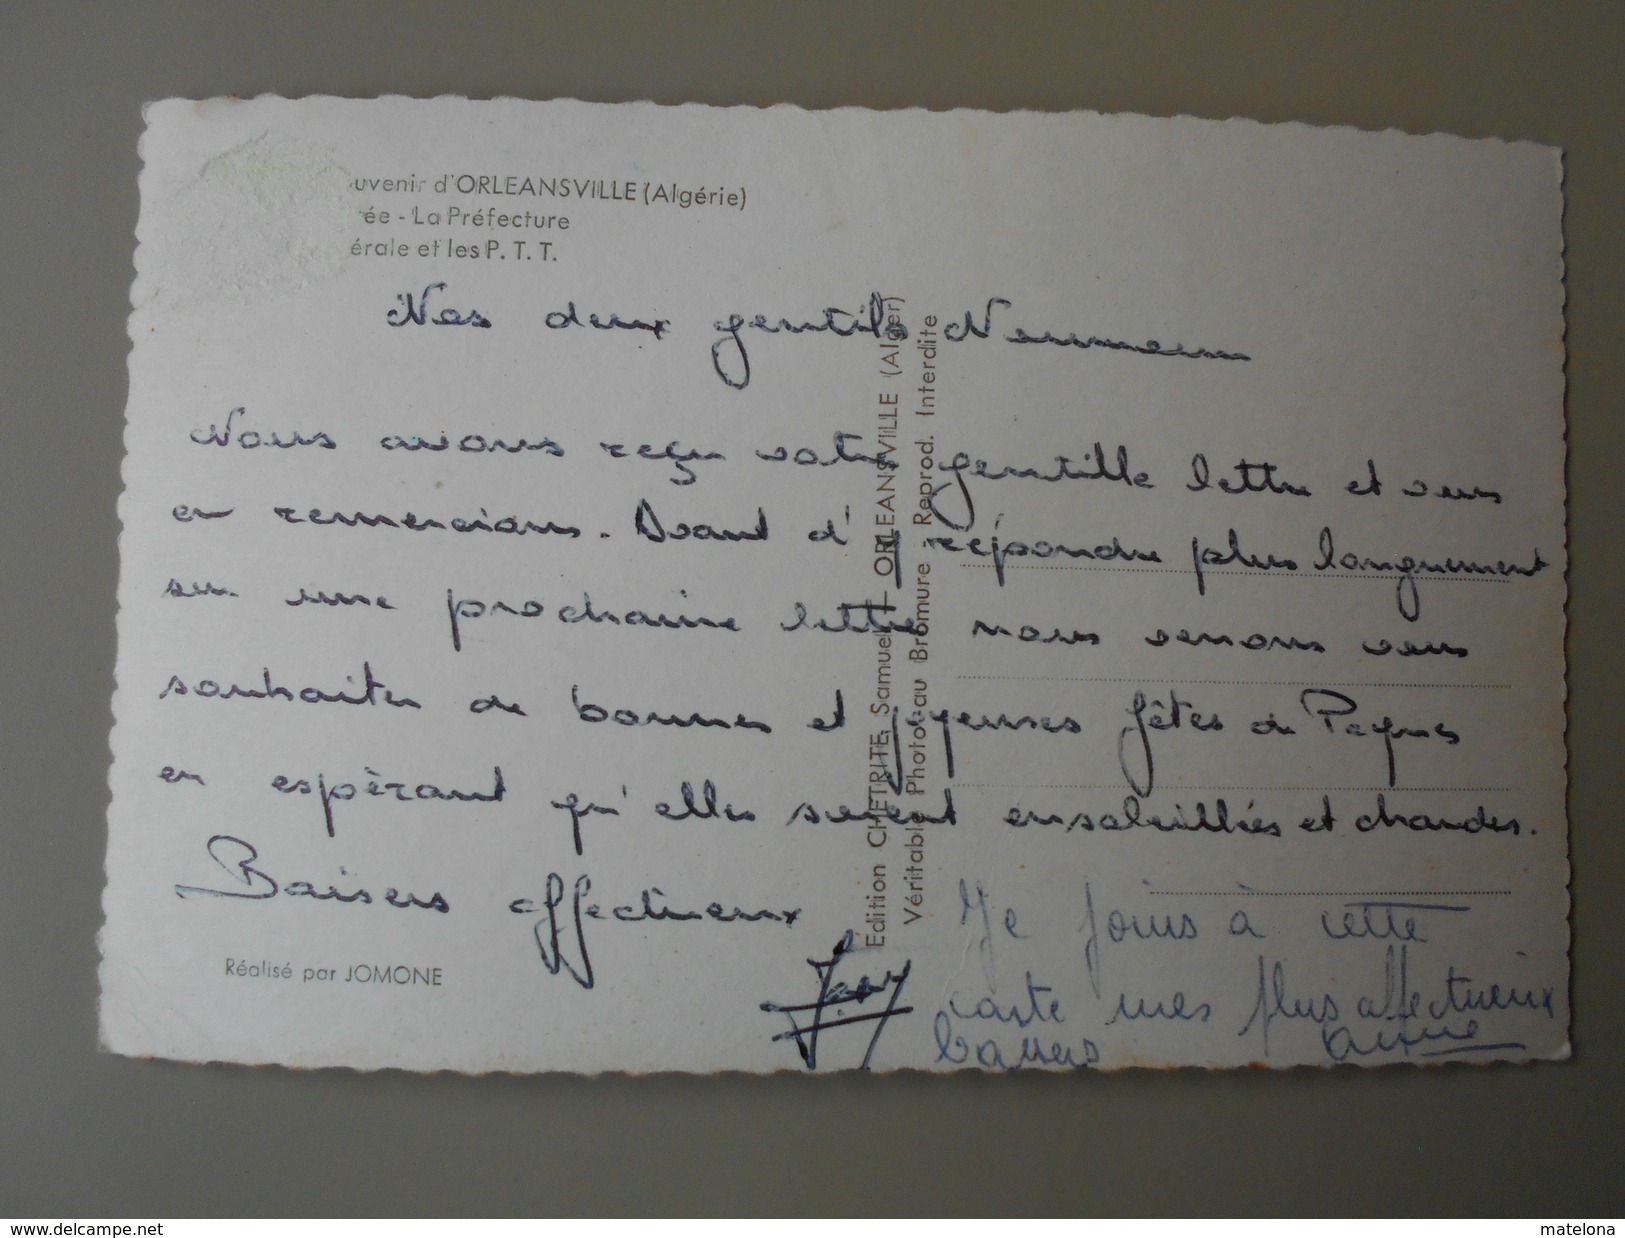 uvenir d'ORLEANSVILLE (Algérie)
ée - La Préfecture
érale et les P. T. T.
Nos deux gentils
Nous avons reçu votre gentille lettre et vous
en remercions. Avant d'y répondre plus longuement
sur une prochaine lettre nous venons vous
souhaiter de bonnes et joyeuses fêtes de Paques
en espérant qu'elles seront ensoleillées et chaudes.
Baisers affectueux
Je joins à cette
carte mes plus affectueux
baisers
Réalisé par JOMONE
Edition CHETRITE Samuel - ORLEANSVILLE (Alger)
Véritable Photo au Bromure - Reprod. Interdite
www.delcampe.net
matelona